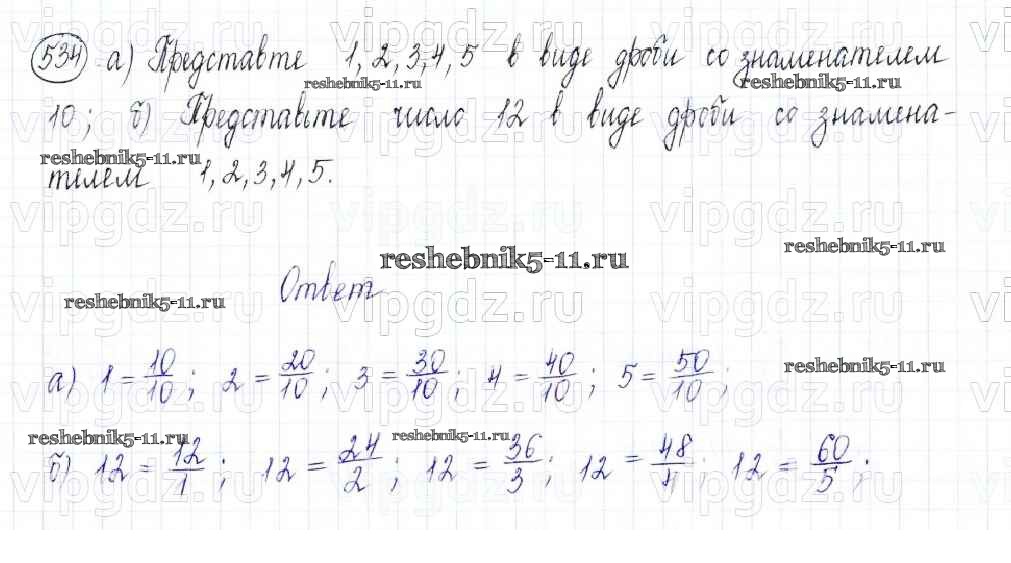 534 а) Представте 1, 2, 3, 4, 5 в виде дроби со знаменателем
10; б) Представьте число 12 в виде дроби со знамена-
телем 1, 2, 3, 4, 5.
Ответ
а) 1 = 10/10; 2 = 20/10; 3 = 30/10; 4 = 40/10; 5 = 50/10;
б) 12 = 12/1; 12 = 24/2; 12 = 36/3; 12 = 48/4; 12 = 60/5;
reshebnik5-11.ru
vipgdz.ru